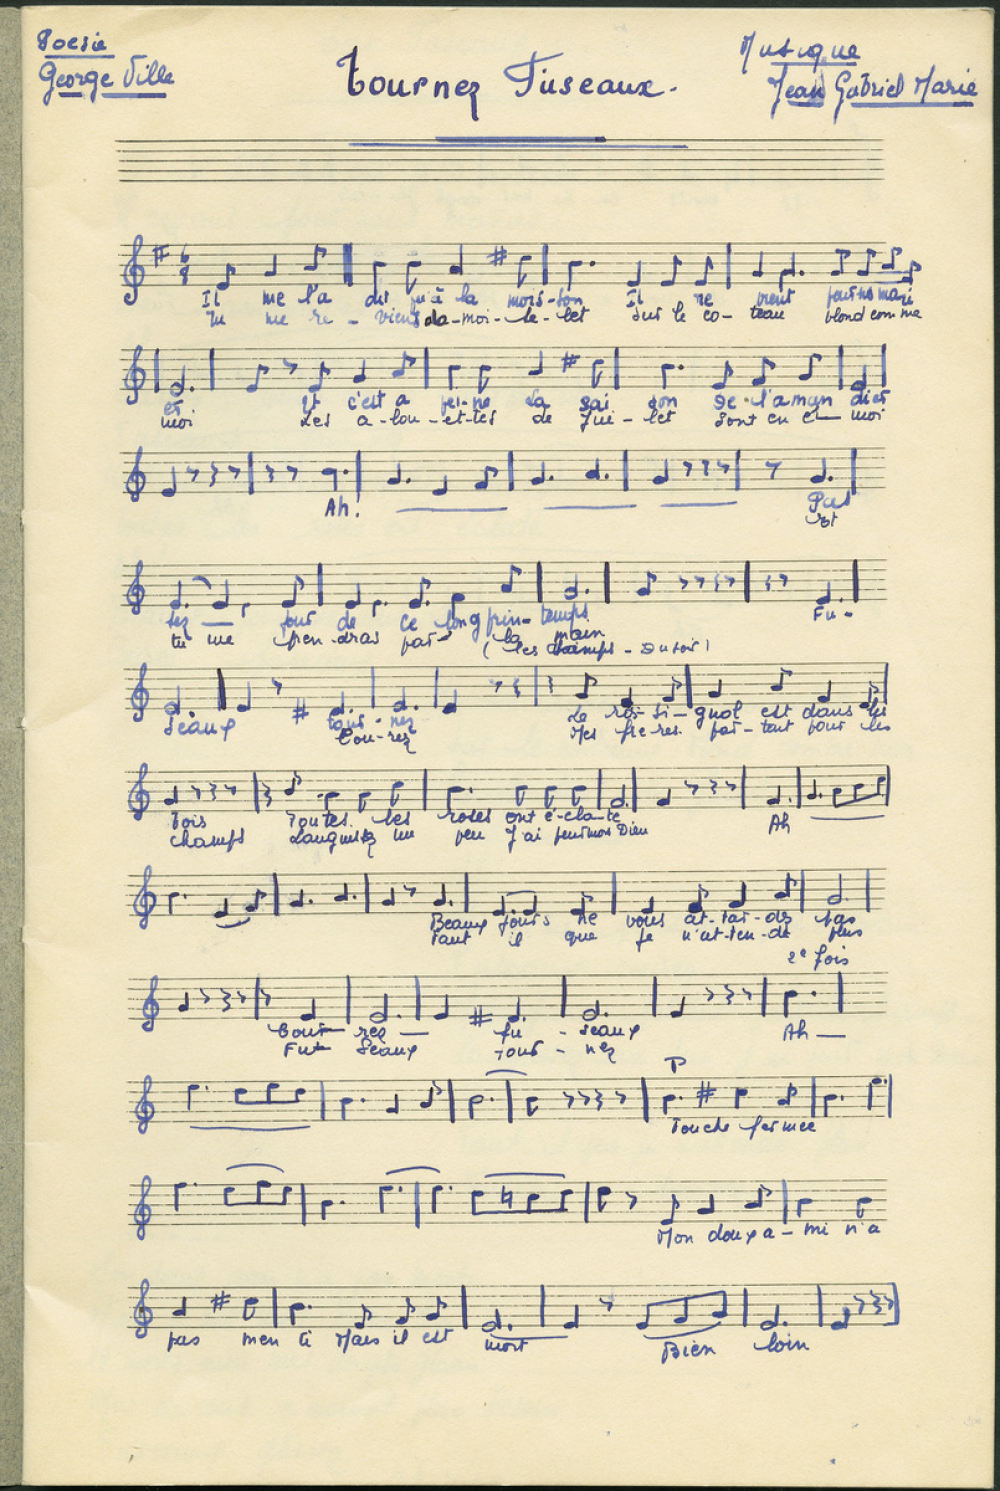 Poesie
George Ville
Tournez Fuseaux.
Musique
Jean Gabriel Marie
Il me l'a dit qu'à la mois-son Il re vient pour no mari
Tu me re - viens da-moi-se-let sur le co-teau blond com me
er Et c'est a pei-ne la sai son de l'aman dier
moi Les a-lou-et-tes de Jui-let sont en e- moi
Ah! Pas
et
sez jour de ce long prin- temps Fu-
tu me pren-dras par la main
(les champs - Du soir)
seaux tour-nez Le ros-si-gnol est dans les
Cou-rez Mes fre-res par-tent pour les
bois Toutes les roses ont é-cla-té Ah
champs Languissez un peu J'ai peur mon Dieu
Beaux jours ne vous at-tar-dez pas
tant il que je n'at-ten-de plus
2e fois
Cour- rez fu - seaux Ah
Fu- seaux Tour - nez
P
Bouche fermee
Mon doux a-mi n'a
pas men ti Mais il est mort Bien loin